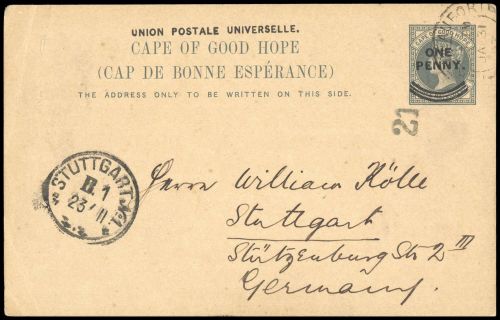 UNION POSTALE UNIVERSELLE.
CAPE OF GOOD HOPE
(CAP DE BONNE ESPÉRANCE)
THE ADDRESS ONLY TO BE WRITTEN ON THIS SIDE.
CAPE OF GOOD HOPE
ONE
PENNY.
JA 31
21
STUTTGART
B. 1
23/II
Herrn William Kölle
Stuttgart
Stützenburg Str 2 III
Germany.